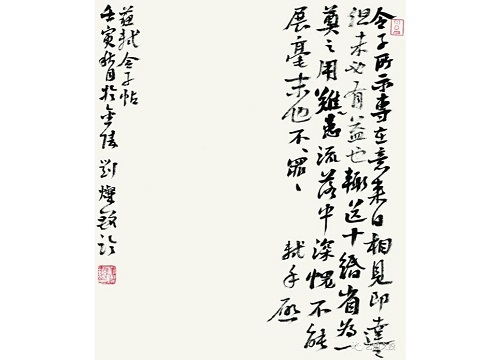 令子所示專在意來日相見即達之
但未必有益也輒送十緡省為一
奠之用難患流落中深愧不能
展毫末也不〻罪〻 軾手啟
蘇軾令子帖
壬寅秋月於金陵劉燦銘臨